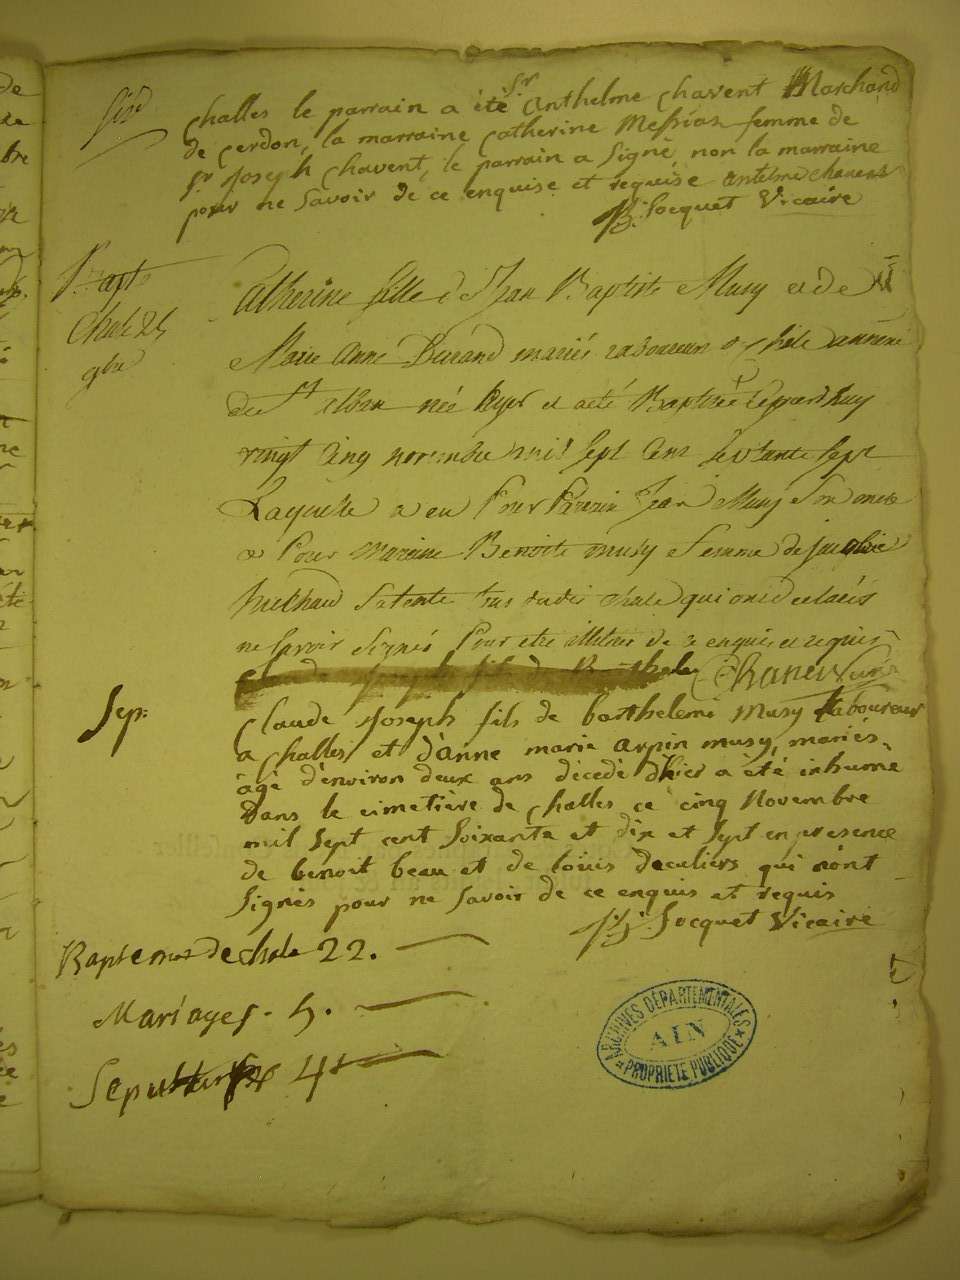 challes le parrain a été Sr Anthelme chavent Marchand
de cerdon, la marraine catherine Messiaz femme de
Sr Joseph chavent, le parrain a signé, non la marraine
pour ne savoir de ce enquise et requise antelme chavent
Jocquet Vicaire
Bapt
Chale 25
9bre
Catherine fille de Jean Baptiste Musy et de
Marie Anne Durand mariés laboureur de chale annexe
de St alban née hyer et a été Baptisée aujourdhuy
vingt cinq novembre mil sept cent septante sept
Laquelle a eu Pour Parrain Jean Musy son oncle
et Pour maraine Benoite musy femme de
Michaud sa tente tous dudit chale qui ont declarés
ne savoir signés Pour etre illitrés de ce enquis et requis
Chanel curé
Sep:
Claude Joseph fils de barthelemi Musy laboureur
a challes et d'anne marie arpin musy, mariés
âgé d'environ deux ans décedé d'hier a été inhumé
Dans le cimetière de challes ce cinq Novembre
mil sept cent soixante et dix et sept en presence
de benoit beau et de loüis deculiers qui n'ont
signés pour ne savoir de ce enquis et requis
Jocquet Vicaire
Baptemes de chale 22.
Mariages. 5.
Sepultures 4
ARCHIVES DÉPARTEMENTALES
AIN
PROPRIETE PUBLIQUE